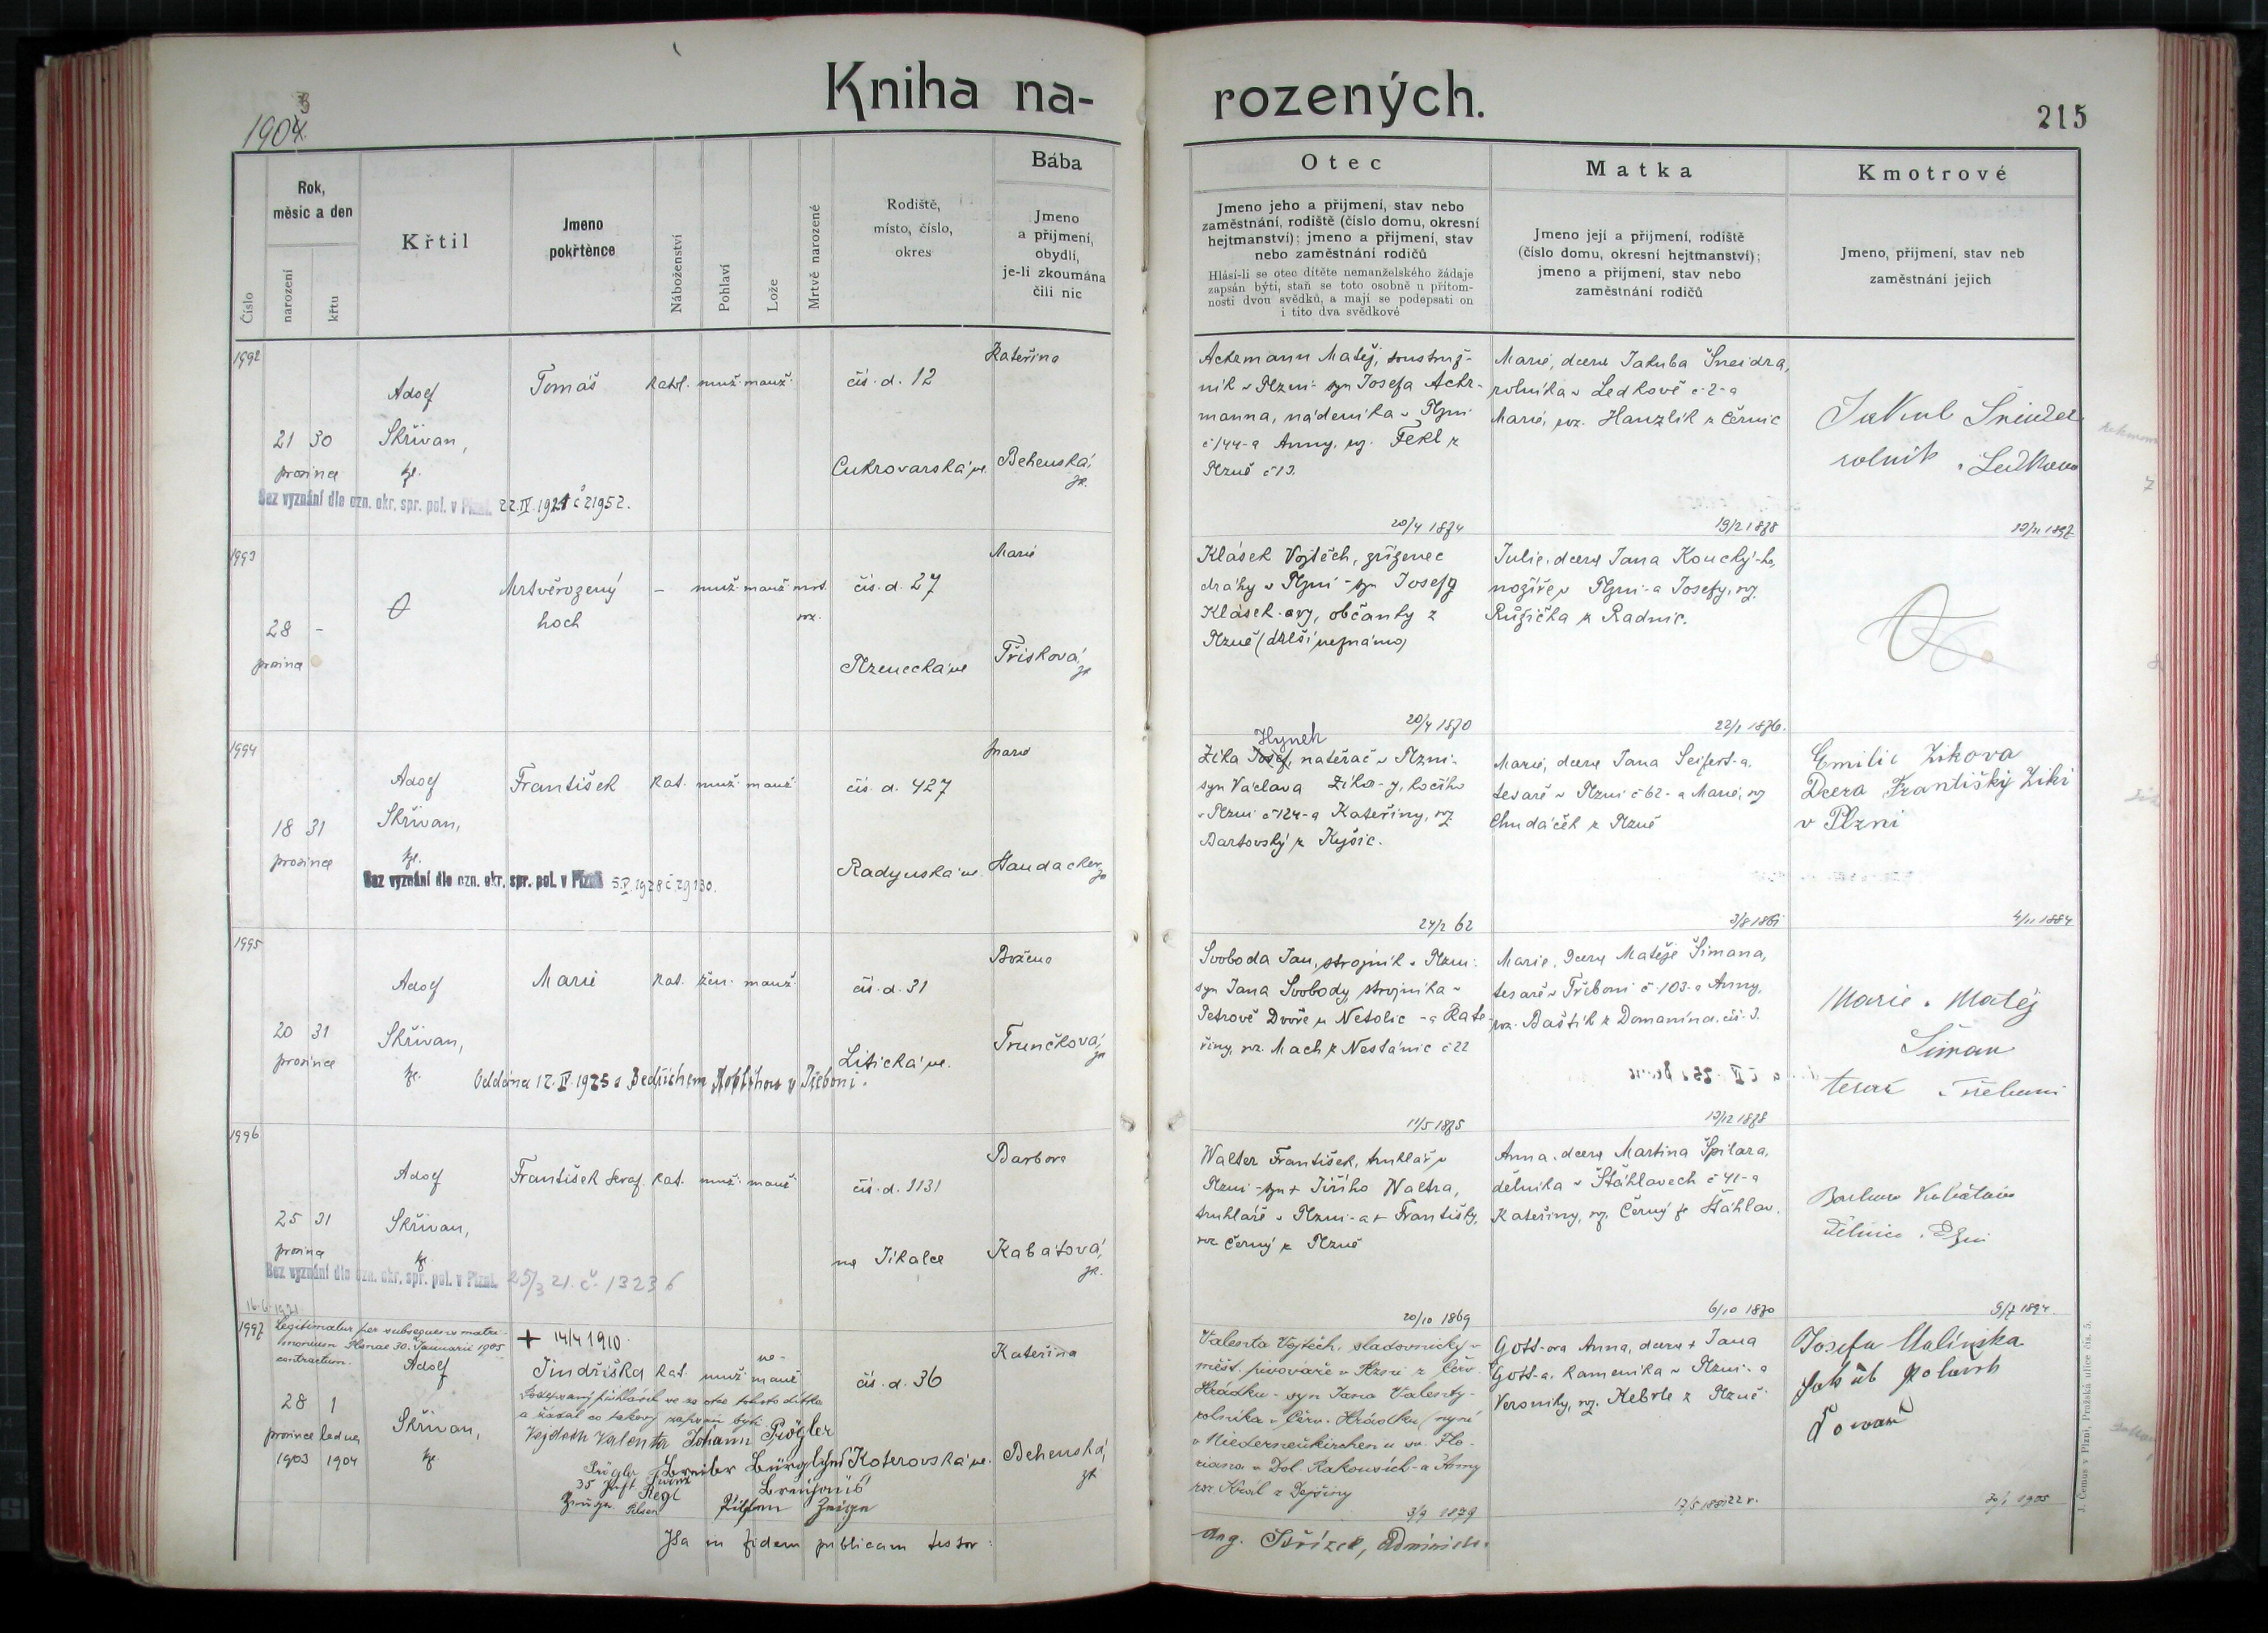 Kniha na-
rozených.
1903
215
Číslo
Rok,
měsíc a den
narození
křtu
Křtil
Jmeno
pokřtěnce
Náboženství
Pohlaví
Lože
Mrtvě narozené
Rodiště,
místo, číslo,
okres
Bába
Jmeno
a přijmení,
obydlí,
je-li zkoumána
čili nic
Otec
Jmeno jeho a přijmení, stav nebo
zaměstnání, rodiště (číslo domu, okresní
hejtmanství); jmeno a přijmení, stav
nebo zaměstnání rodičů
Hlásí-li se otec dítěte nemanželského žádaje
zapsán býti, staň se toto osobně u přítom-
nosti dvou svědků, a mají se podepsati on
i tito dva svědkové
Matka
Jmeno její a přijmení, rodiště
(číslo domu, okresní hejtmanství);
jmeno a přijmení, stav nebo
zaměstnání rodičů
Kmotrové
Jmeno, přijmení, stav neb
zaměstnání jejich
1992
21 30
prosince
Adolf
Skřivan,
kpl.
Tomáš
katol. muž. manž.
čís. d. 12
Cukrovarská ul.
Kateřina
Behenská,
zk.
Bez vyznání dle ozn. okr. spr. pol. v Plzni. 22.IV.1921 č 21952.
Ackemann Matěj, soustruž-
ník v Plzni - syn Josefa Ack-
manna, nádeníka v Plzni
č 144 - a Anny, roz. Fekl z
Plzně č 13.
20/4 1874
Marie, dcera Jakuba Šneidra,
rolníka v Ledkově č 2 - a
Marie, roz. Hanzlík z Černic
19/2 1878
Jakub Šneidr
rolník v Ledkově
1993
28 -
prosince
Mrtvěrozený
hoch
- muž. manž. mrt.
roz.
čís. d. 27
Plzenecká ul.
Marie
Třísková,
zk
Klásek Vojtěch, zřízenec
dráhy v Plzni - syn Josefy
Klásek-ovy, občanky z
Plzně (další neznámo)
20/4 1870
Julie, dcera Jana Koucký-ho,
nožíře v Plzni - a Josefy, roz.
Růžička z Radnic.
22/1 1876.
1994
18 31
prosince
Adolf
Skřivan,
kpl.
František
kat. muž. manž.
čís. d. 427
Radynská ul.
Marie
Haudackova
zk
Bez vyznání dle ozn. okr. spr. pol. v Plzni 5.V.1928 č. 29130.
Hynek
Zíka Josef, natěrač v Plzni -
syn Václava Zíka-y, kočího
v Plzni č 124 - a Kateřiny, roz.
Bartovský z Kyšic.
24/2 62
Marie, dcera Jana Seifert-a,
tesaře v Plzni č 62 - a Marie, roz
Chudáček z Plzně
Emilie Zikova
Dcera Františky Ziki
v Plzni
4/11 1884
1995
20 31
prosince
Adolf
Skřivan,
kpl.
Marie
kat. žen. manž.
čís. d. 31
Litická ul.
Božena
Trunčková,
zk
Svoboda Jan, strojník v Plzni -
syn Jana Svobody, strojníka v
Petrově Dvoře u Netolic - a Kate-
řiny, roz. Mach z Nestánic č 22
11/5 1875
Marie, dcera Matěje Šimana,
tesaře v Třeboni č 103 - a Anny,
roz. Baštík z Domanína čís. 3.
19/12 1878
Marie a Matěj
Šiman
tesař v Třeboni
1996
25 31
prosince
Adolf
Skřivan,
kpl.
František Seraf.
kat. muž. manž.
čís. d. 1131
na Jíkalce
Barbora
Kabátová,
zk.
Bez vyznání dle ozn. okr. spr. pol. v Plzni. 25/3 21. č. 13236
Walter František, truhlář v
Plzni - syn + Jiřího Waltra,
truhláře v Plzni - a + Františky,
roz Černý z Plzně
20/10 1869
Anna, dcera Martina Špilara,
dělníka v Šťáhlavech č 41 - a
Kateřiny, roz. Černý ze Šťáhlav.
6/10 1870
9/7 1894
16.6.1921
1997
Legitimatur per subsequens matri-
monium Plsnae 30. Januarii 1905
contractum.
28 1
prosince ledna
1903 1904
Adolf
Skřivan,
kpl
+ 14/4 1910.
Jindřiška
kat. muž. ne-
manž
čís. d. 36
Koterovská ul.
Kateřina
Behenská,
zk
Podepsaný přihlásil se za otce tohoto dítka
a žádal co takový zapsán býti
Vojtěch Valenta Johann Piögler
Ita in fidem publicam testor:
Valenta Vojtěch, sladovnický v
měšt. pivováře v Plzni z Červ.
Hrádku - syn Jana Valenty-
rolníka v Červ. Hrádku (nyní
v Niederneukirchen u sv. Flo-
riana v Dol. Rakousích - a Anny
roz Král z Dejšiny
3/9 1879
Aug. Střízek, Administr.
Gott-ova Anna, dcera + Jana
Gott-a, kameníka v Plzni - a
Veroniky, roz. Kebrle z Plzně
Josefa Malínska
Jakub Polívrk
Továrn
30/1 1905
J. Čenus v Plzni, Pražská ulice čís. 5.